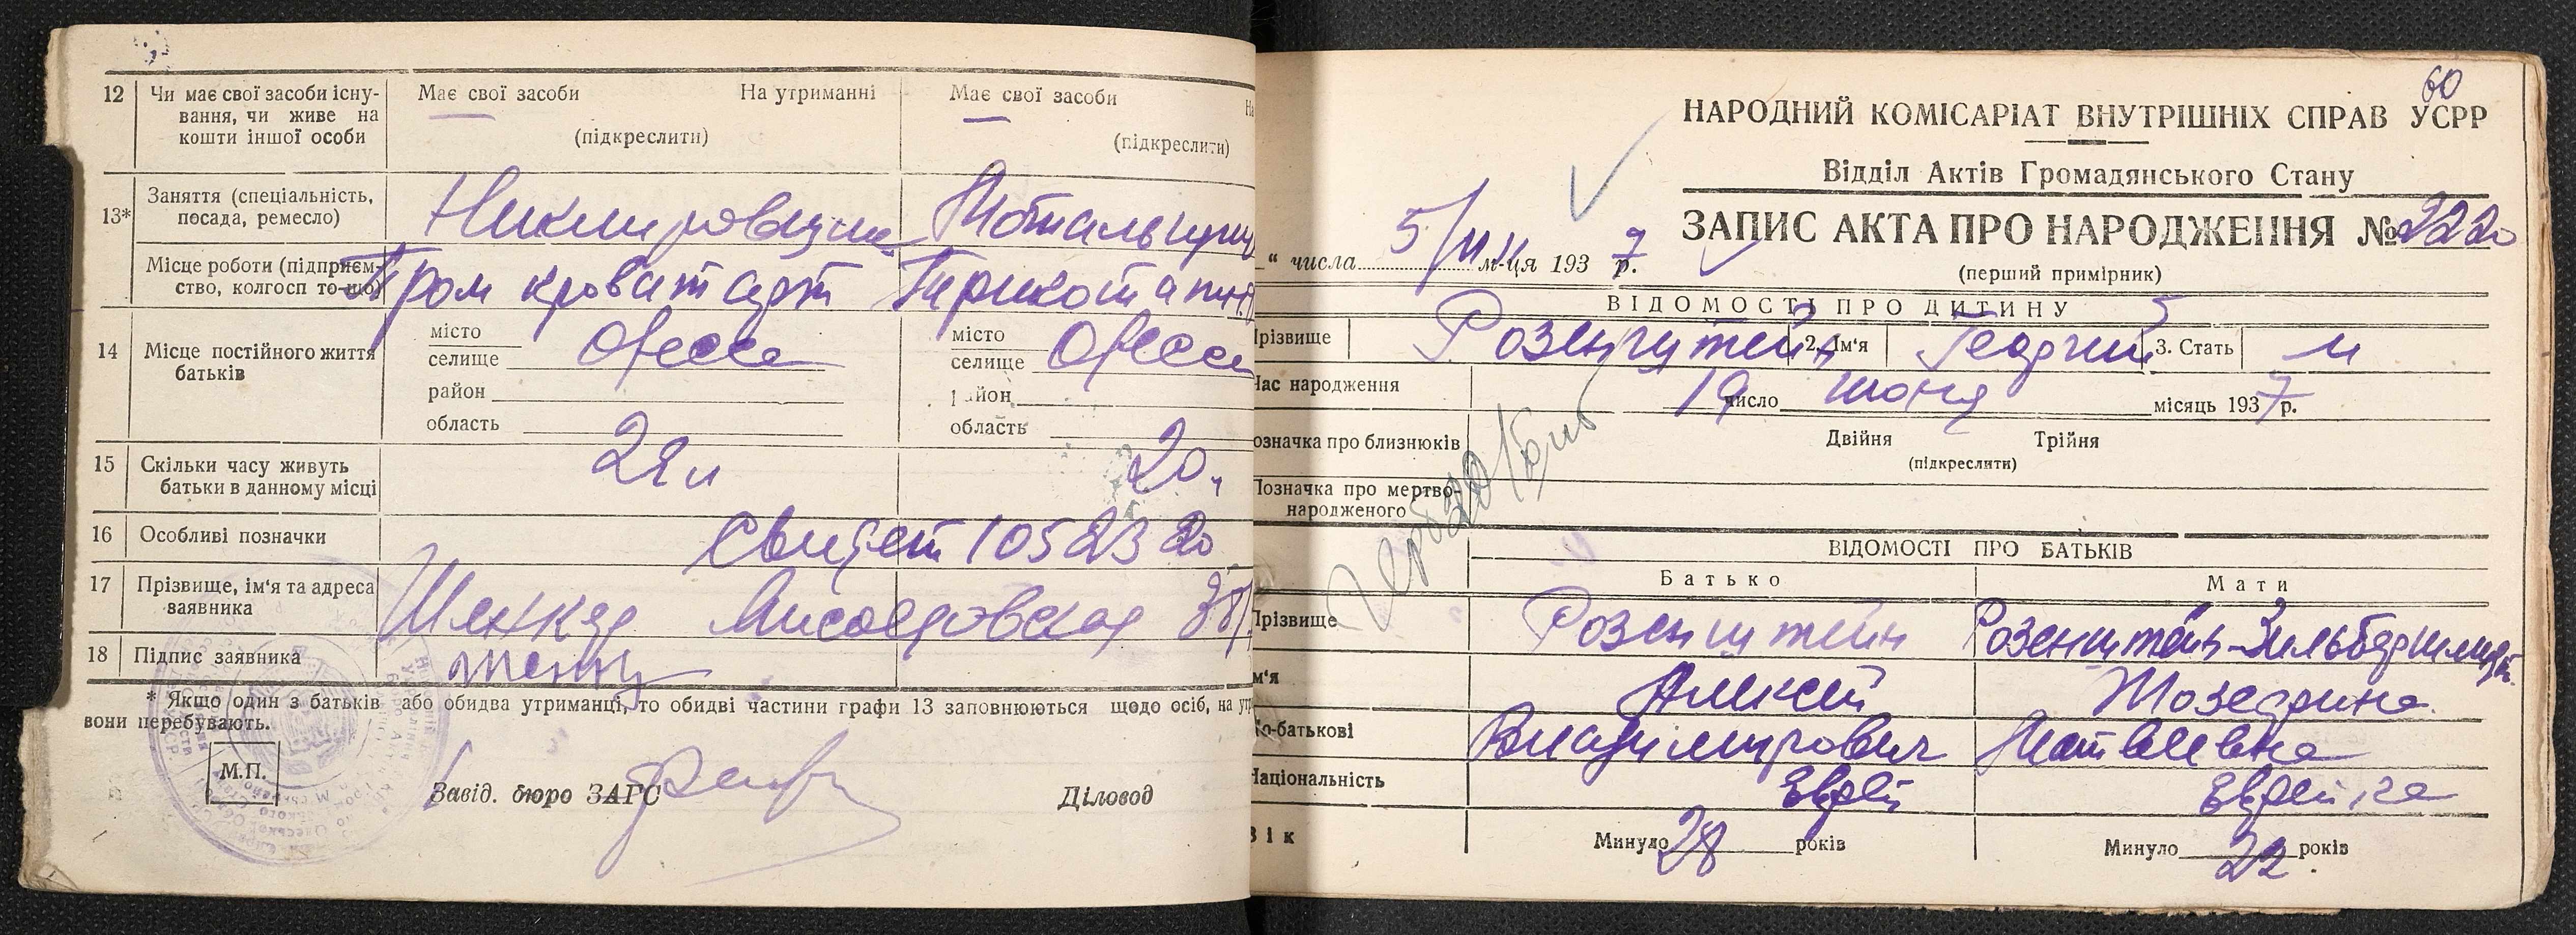 12 Чи має свої засоби існу-
вання, чи живе на
кошти іншої особи
Має свої засоби На утриманні
(підкреслити)
Має свої засоби На
(підкреслити)
13* Заняття (спеціальність,
посада, ремесло)
Никлировщик
Мотальщиц
Місце роботи (підприєм-
ство, колгосп то-що)
Пром кроват арт
Трикотажн
14 Місце постійного життя
батьків
місто
селище Одесса
район
область
місто
селище Одесса
район
область
15 Скільки часу живуть
батьки в данному місці
20
16 Особливі позначки
Свидет 105232
17 Прізвище, ім'я та адреса
заявника
Шенкер Мясоедовская
18 Підпис заявника
* Якщо один з батьків або обидва утриманці, то обидві частини графи 13 заповнюються щодо осіб, на ут
вони перебувають.
М.П.
Завід. бюро ЗАГС
Діловод
60
НАРОДНИЙ КОМІСАРІАТ ВНУТРІШНІХ СПРАВ УСРР
Відділ Актів Громадянського Стану
ЗАПИС АКТА ПРО НАРОДЖЕННЯ № 2220
“ числа 5/VII м-ця 1937 р.
(перший примірник)
ВІДОМОСТІ ПРО ДИТИНУ
Прізвище Розенштейн 2. Ім'я Георгий 3. Стать м
Час народження 19 число июня місяць 1937 р.
означка про близнюків Двійня Трійня
(підкреслити)
Позначка про мертво-
народженого
ВІДОМОСТІ ПРО БАТЬКІВ
Батько Мати
Прізвище Розенштейн Розенштейн-Зильбершмидт
м'я Алексей Жозефина
по-батькові Владимирович Матвеевна
Національність Еврей Еврейка
Вік Минуло 28 років Минуло 22 років